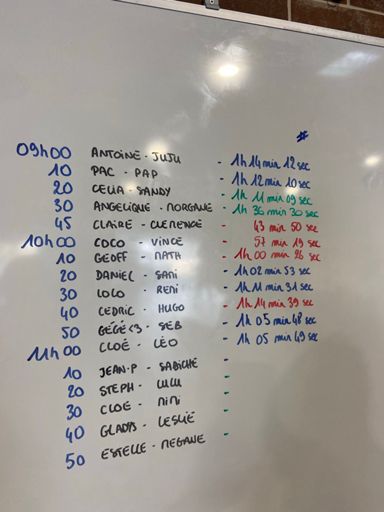 #
09h00 ANTOINE - JUJU - 1h 14 min 12 sec
10 PAC - PAP - 1h 12 min 10 sec
20 CELIA - SANDY - 1h 11 min 09 sec
30 ANGELIQUE - MORGANE - 1h 36 min 30 sec
45 CLAIRE - CLEMENCE - 43 min 50 sec
10h00 COCO - VINCE - 57 min 19 sec
10 GEOFF - MATH - 1h 00 min 26 sec
20 DANIEL - SAMI - 1h 02 min 53 sec
30 LOLO - REMI - 1h 11 min 31 sec
40 CEDRIC - HUGO - 1h 14 min 39 sec
50 GÉGÉ <3 - SEB - 1h 05 min 48 sec
11h00 CLOÉ - LÉO - 1h 05 min 49 sec
10 JEAN-P - SABICHE -
20 STEPH - LULU -
30 CLOE - MIMI -
40 GLADYS - LESLIE -
50 ESTELLE - MEGANE -